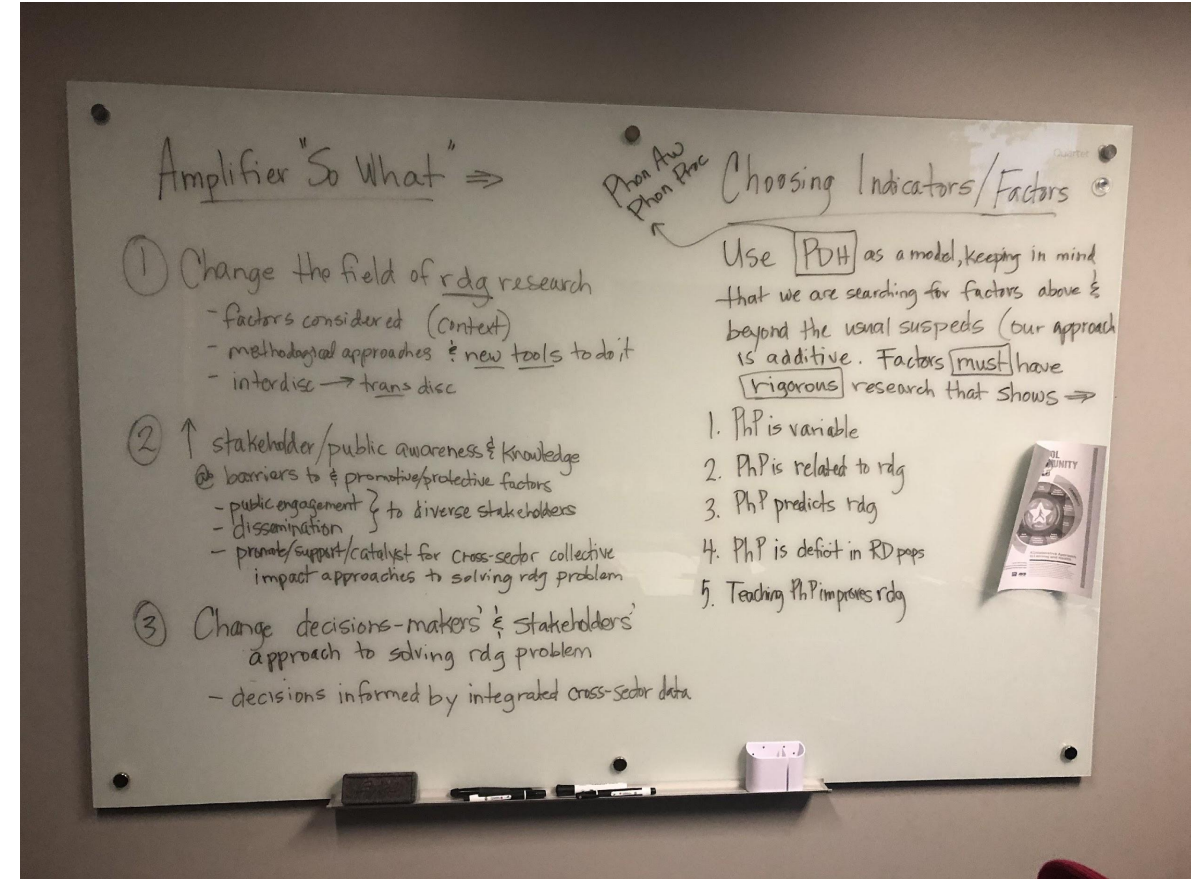 Amplifier "So What" ⇒
① Change the field of rdg research
- factors considered (context)
- methodological approaches & new tools to do it
- interdisc → trans disc
② ↑ stakeholder/public awareness & knowledge
@ barriers to & promotive/protective factors
- public engagement } to diverse stakeholders
- dissemination
- promote/support/catalyst for cross-sector collective
impact approaches to solving rdg problem
③ Change decisions-makers' & stakeholders'
approach to solving rdg problem
- decisions informed by integrated cross-sector data
Phon Aw
Phon Proc
Choosing Indicators/Factors
Use PDH as a model, keeping in mind
that we are searching for factors above &
beyond the usual suspects (our approach
is additive. Factors must have
rigorous research that shows ⇒
1. PhP is variable
2. PhP is related to rdg
3. PhP predicts rdg
4. PhP is deficit in RD pops
5. Teaching PhP improves rdg
Quartet